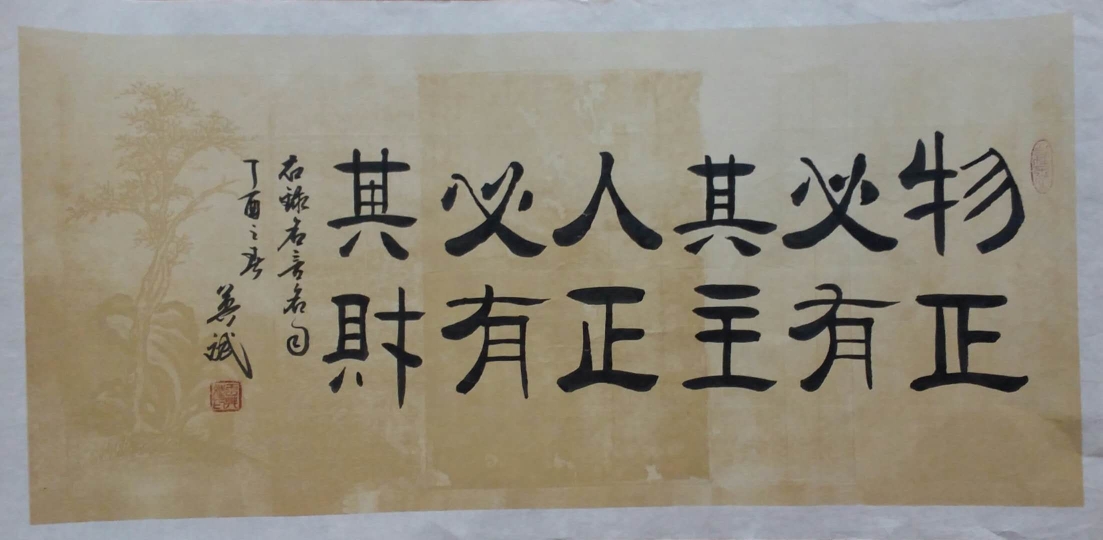 物正
必有
其主
人正
必有
其財
右錄名言名句
丁酉之春
英斌